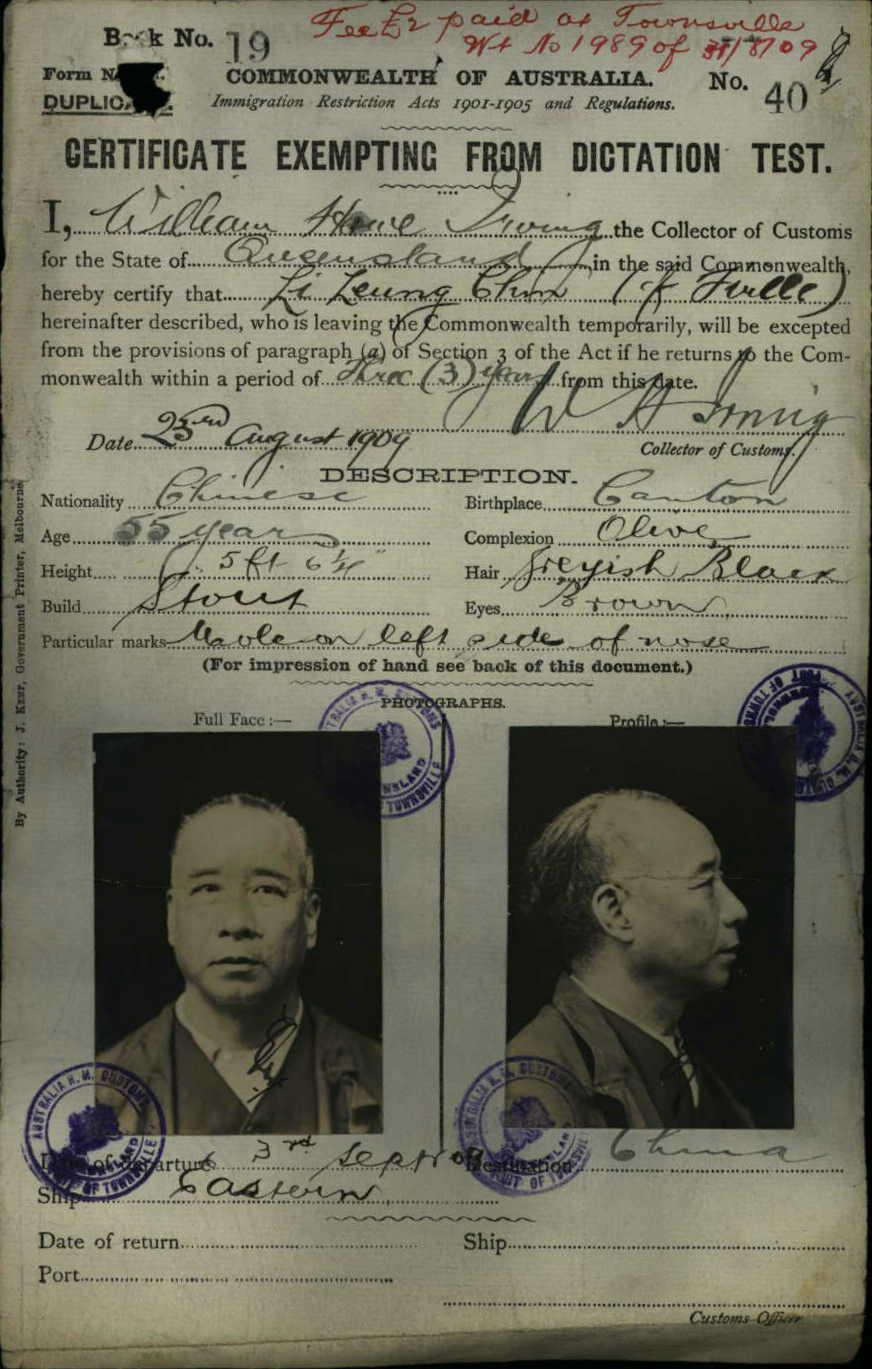 Book No. 19
Fee £2 paid at Townsville
Wt No 1989 of 31/8/09
Form No.
DUPLICATE.
COMMONWEALTH OF AUSTRALIA.
No. 40
Immigration Restriction Acts 1901-1905 and Regulations.
CERTIFICATE EXEMPTING FROM DICTATION TEST.
I, William Howe Irving the Collector of Customs
for the State of Queensland in the said Commonwealth,
hereby certify that Li Leung Chun (of Tville)
hereinafter described, who is leaving the Commonwealth temporarily, will be excepted
from the provisions of paragraph (a) of Section 3 of the Act if he returns to the Com-
monwealth within a period of Three (3) years from this date.
W H Irving
Date 23rd August 1909
Collector of Customs.
DESCRIPTION.
Nationality Chinese Birthplace Canton
Age 55 years Complexion Olive
Height 5 ft 6 1/4" Hair Greyish Black
Build Stout Eyes Brown
Particular marks Mole on left side of nose
(For impression of hand see back of this document.)
PHOTOGRAPHS.
Full Face :— Profile :—
Date of departure 3rd Sept 09 Destination China
Ship Eastern
Date of return Ship
Port
Customs Officer
By Authority: J. Kemp, Government Printer, Melbourne
AUSTRALIA H. M. CUSTOMS
QUEENSLAND
PORT OF TOWNSVILLE